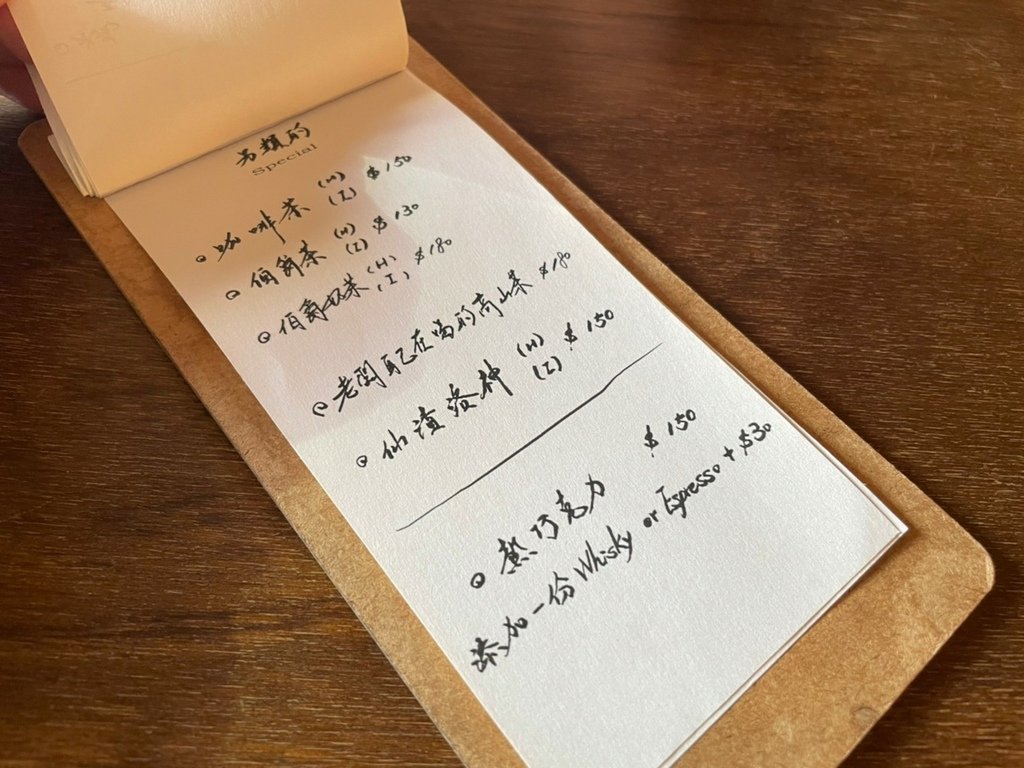 另類的
Special
咖啡茶 (H) (I) $150
伯爵茶 (H) (I) $130
伯爵奶茶 (H) (I) $180
老闆自己在喝的高山茶 $180
仙渣洛神 (H) (I) $150
熱巧克力 $150
添加一份 Whisky or Espresso + $30